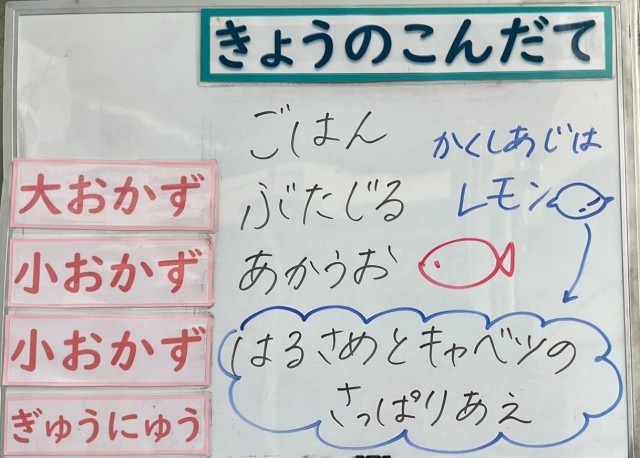 きょうのこんだて
ごはん
かくしあじは
レモン
大おかず
ぶたじる
小おかず
あかうお
小おかず
はるさめとキャベツの
さっぱりあえ
ぎゅうにゅう